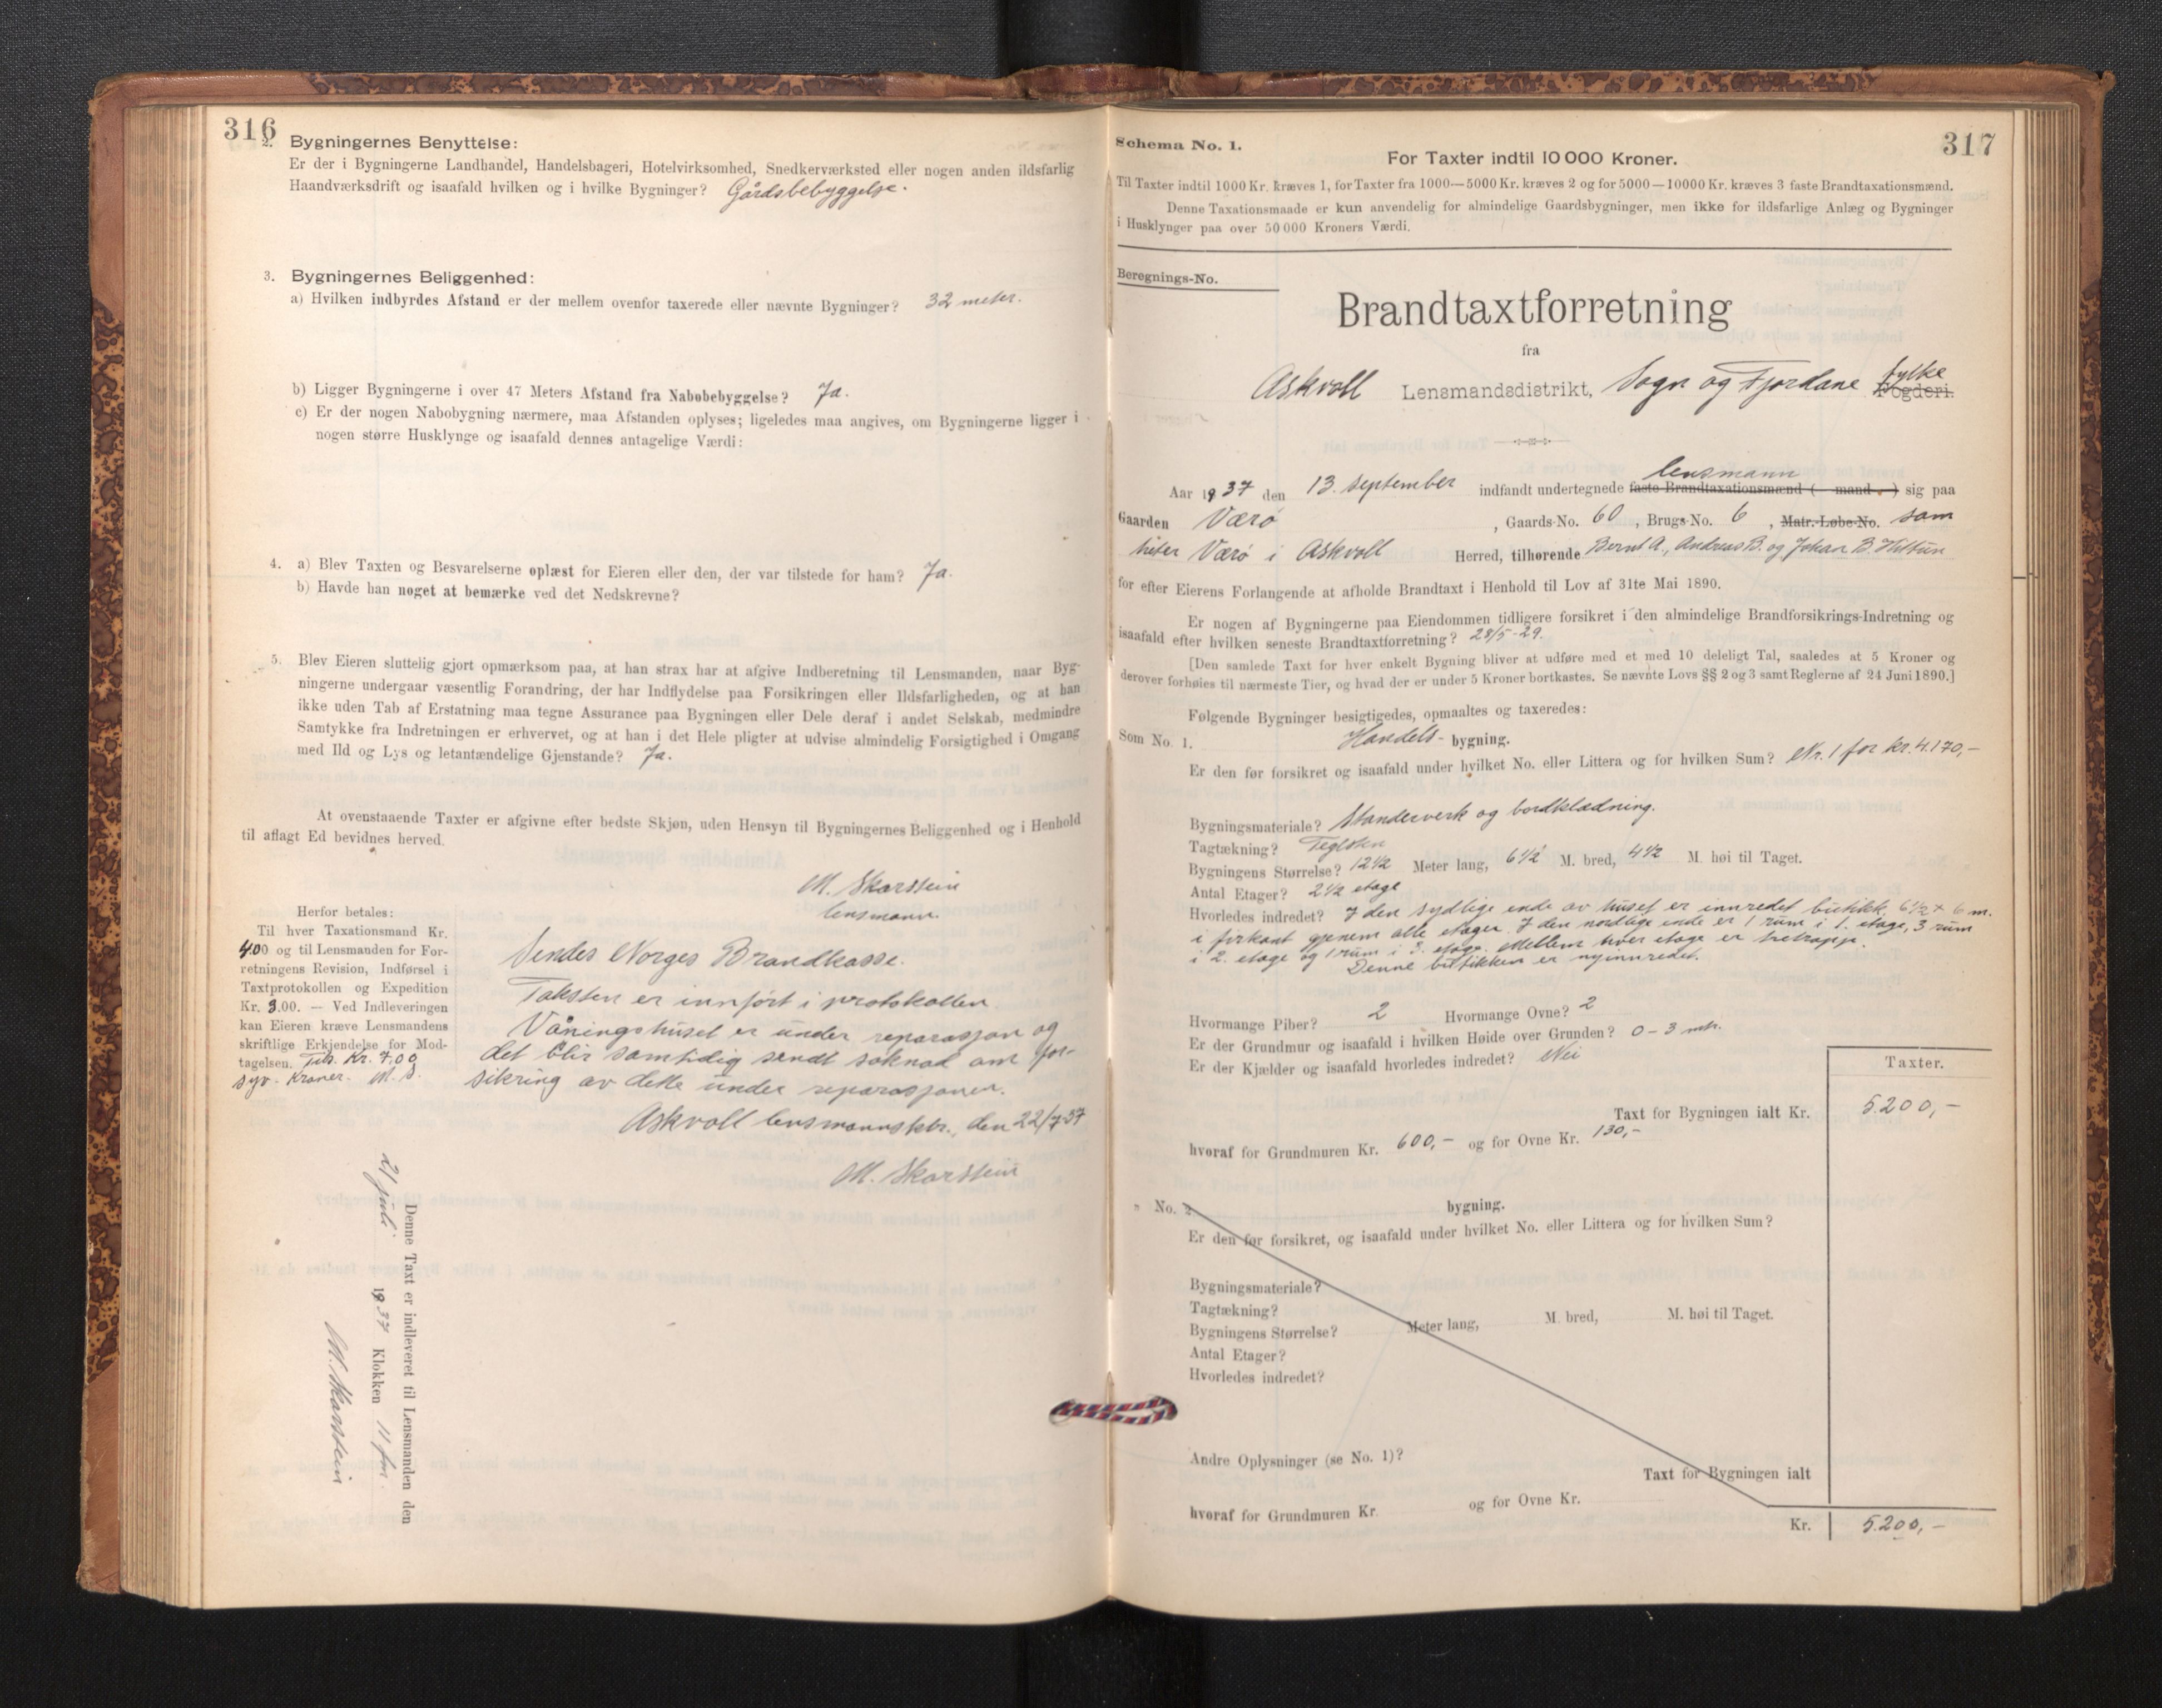 316
2. Bygningernes Benyttelse:
Er der i Bygningerne Landhandel, Handelsbageri, Hotelvirksomhed, Snedkerværksted eller nogen anden ildsfarlig
Haandværksdrift og isaafald hvilken og i hvilke Bygninger? Gårdsbebyggelse.
3. Bygningernes Beliggenhed:
a) Hvilken indbyrdes Afstand er der mellem ovenfor taxerede eller nævnte Bygninger? 32 meter.
b) Ligger Bygningerne i over 47 Meters Afstand fra Nabobebyggelse? Ja.
c) Er der nogen Nabobygning nærmere, maa Afstanden oplyses; ligeledes maa angives, om Bygningerne ligger i
nogen større Husklynge og isaafald dennes antagelige Værdi:
4. a) Blev Taxten og Besvarelserne oplæst for Eieren eller den, der var tilstede for ham? Ja.
b) Havde han noget at bemærke ved det Nedskrevne?
5. Blev Eieren sluttelig gjort opmærksom paa, at han strax har at afgive Indberetning til Lensmanden, naar Byg-
ningerne undergaar væsentlig Forandring, der har Indflydelse paa Forsikringen eller Ildsfarligheden, og at han
ikke uden Tab af Erstatning maa tegne Assurance paa Bygningen eller Dele deraf i andet Selskab, medmindre
Samtykke fra Indretningen er erhvervet, og at han i det Hele pligter at udvise almindelig Forsigtighed i Omgang
med Ild og Lys og letantændelige Gjenstande? Ja.
At ovenstaaende Taxter er afgivne efter bedste Skjøn, uden Hensyn til Bygningernes Beliggenhed og i Henhold
til aflagt Ed bevidnes herved.
M. Skarstein
lensmann.
Herfor betales:
Til hver Taxationsmand Kr.
4.00 og til Lensmanden for For-
retningens Revision, Indførsel i
Taxtprotokollen og Expedition
Kr. 3.00. — Ved Indleveringen
kan Eieren kræve Lensmandens
skriftlige Erkjendelse for Mod-
tagelsen. Tils. Kr. 7,00
syv. Kroner. M. S.
Sendes Norges Brandkasse.
Taksten er innført i protokollen.
Våningshuset er under reparasjon og
det blir samtidig sendt søknad om for-
sikring av dette under reparasjonen.
Askvoll lensmannsktr., den 22/7-37
M. Skarstein
Denne Taxt er indleveret til Lensmanden den
21 juli 1937 Klokken 11 fm.
M. Skarstein
317
Schema No. 1.
For Taxter indtil 10 000 Kroner.
Til Taxter indtil 1000 Kr. kræves 1, for Taxter fra 1000—5000 Kr. kræves 2 og for 5000—10000 Kr. kræves 3 faste Brandtaxationsmænd.
Denne Taxationsmaade er kun anvendelig for almindelige Gaardsbygninger, men ikke for ildsfarlige Anlæg og Bygninger
i Husklynger paa over 50 000 Kroners Værdi.
Beregnings-No.
Brandtaxtforretning
fra
Askvoll Lensmandsdistrikt, Sogn og Fjordane fylke Fogderi.
Aar 1937 den 13. september indfandt undertegnede lensmann faste Brandtaxationsmænd ( mand ) sig paa
Gaarden Værø, Gaards-No. 60, Brugs-No. 6, Matr.-Løbe-No. som
heter Værø i Askvoll Herred, tilhørende Bernt A., Andreas B. og Johan B. Hiltun
for efter Eierens Forlangende at afholde Brandtaxt i Henhold til Lov af 31te Mai 1890.
Er nogen af Bygningerne paa Eiendommen tidligere forsikret i den almindelige Brandforsikrings-Indretning og
isaafald efter hvilken seneste Brandtaxtforretning? 28/5-29.
[Den samlede Taxt for hver enkelt Bygning bliver at udføre med et med 10 deleligt Tal, saaledes at 5 Kroner og
derover forhøies til nærmeste Tier, og hvad der er under 5 Kroner bortkastes. Se nævnte Lovs §§ 2 og 3 samt Reglerne af 24 Juni 1890.]
Følgende Bygninger besigtigedes, opmaaltes og taxeredes:
Som No. 1. Handels- bygning.
Er den før forsikret og isaafald under hvilket No. eller Littera og for hvilken Sum? Nr. 1 for kr. 4.170,-
Bygningsmateriale? Standerverk og bordklædning.
Tagtækning? Teglsten
Bygningens Størrelse? 12 1/2 Meter lang, 6 1/2 M. bred, 4 1/2 M. høi til Taget.
Antal Etager? 2 1/2 etage
Hvorledes indredet? I den sydlige ende av huset er innredet butikk, 6 1/2 x 6 m.
i firkant gjenem alle etager. I den nordlige ende er 1 rum i 1. etage, 3 rum
i 2. etage og 1 rum i 3. etage. Mellem hver etage er tretrapp.
Denne butikken er nyinnredet.
Hvormange Piber? 2 Hvormange Ovne? 2
Er der Grundmur og isaafald i hvilken Høide over Grunden? 0-3 mtr.
Er der Kjælder og isaafald hvorledes indredet? Nei
Taxter.
Taxt for Bygningen ialt Kr. 5.200,-
hvoraf for Grundmuren Kr. 600,- og for Ovne Kr. 130,-
" No. 2. bygning.
Er den før forsikret, og isaafald under hvilket No. eller Littera og for hvilken Sum?
Bygningsmateriale?
Tagtækning?
Bygningens Størrelse? Meter lang, M. bred, M. høi til Taget.
Antal Etager?
Hvorledes indredet?
Andre Oplysninger (se No. 1)?
Taxt for Bygningen ialt
hvoraf for Grundmuren Kr. og for Ovne Kr.
Kr. 5.200,-